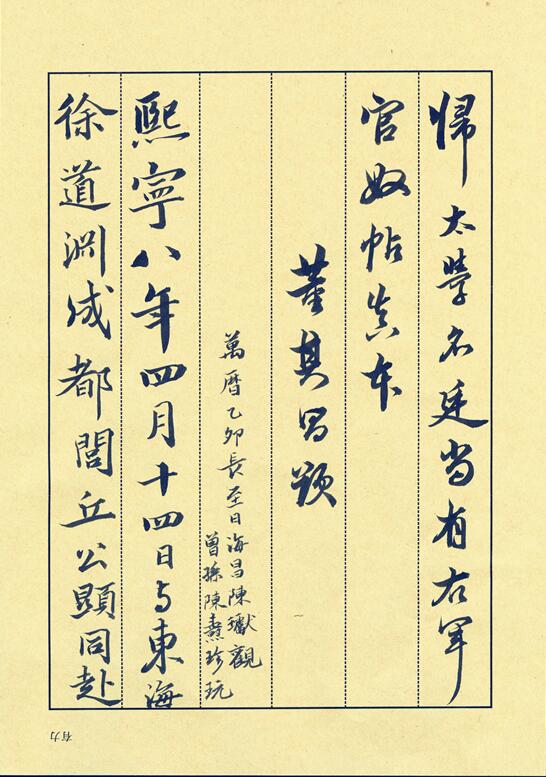 歸太學名廷当有右軍
官奴帖真本
董其昌題
萬曆乙卯長至日海昌陳瓛觀
曾孫陳熹珍玩
熙寧八年四月十四日与東海
徐道渊成都閭丘公顯同赴
有力